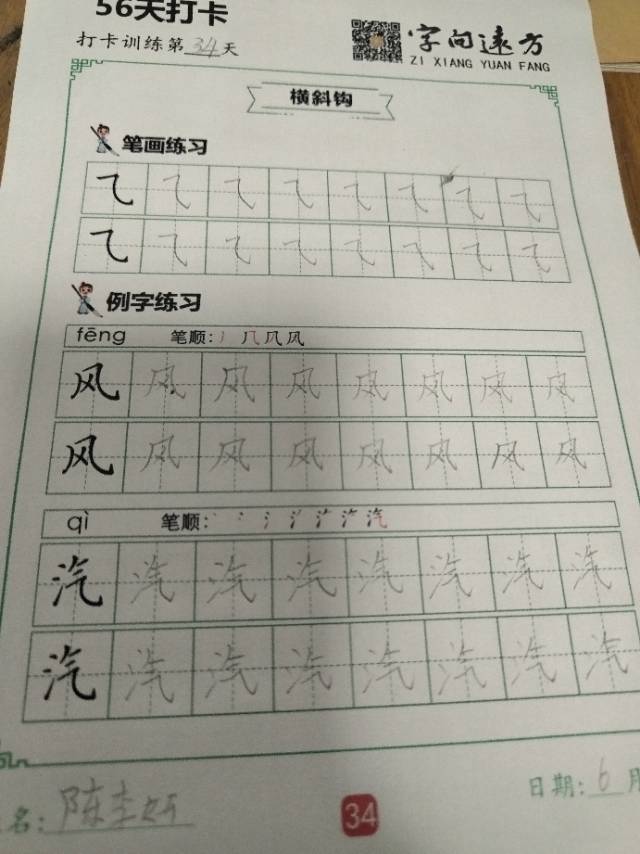 56天打卡
打卡训练第34天
字向远方
ZI XIANG YUAN FANG
横斜钩
笔画练习
⺄ ⺄ ⺄ ⺄ ⺄ ⺄ ⺄ ⺄
⺄ ⺄ ⺄ ⺄ ⺄ ⺄ ⺄ ⺄
例字练习
fēng 笔顺：丿 几 风 风
风 风 风 风 风 风 风 风
风 风 风 风 风 风 风 风
qì 笔顺：
汽 汽 汽 汽 汽 汽 汽 汽
汽 汽 汽 汽 汽 汽 汽 汽
名：陈李妍
34
日期：6月